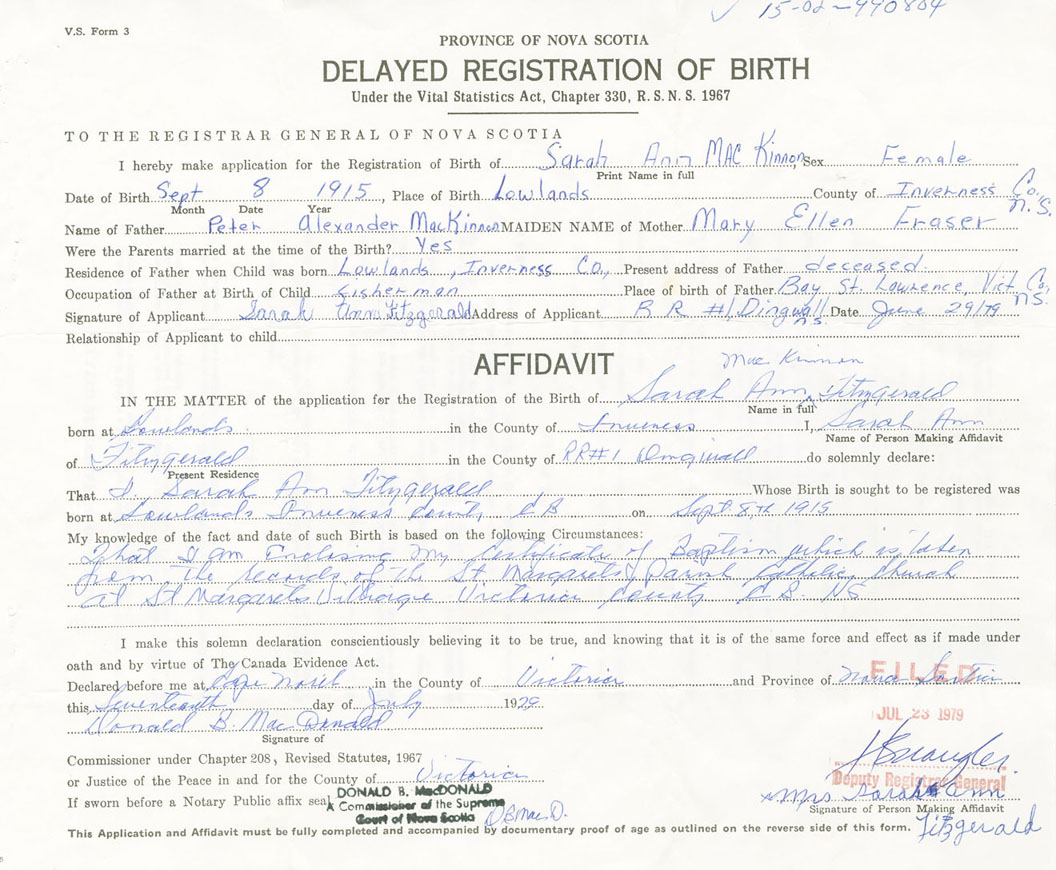 V.S. Form 3
15-02-990804
PROVINCE OF NOVA SCOTIA
DELAYED REGISTRATION OF BIRTH
Under the Vital Statistics Act, Chapter 330, R.S.N.S. 1967
TO THE REGISTRAR GENERAL OF NOVA SCOTIA
I hereby make application for the Registration of Birth of Sarah Ann MAC Kinnon, Sex Female
Print Name in full
Date of Birth Sept 8 1915, Place of Birth Lowlands County of Inverness Co. N.S.
Month Date Year
Name of Father Peter Alexander MacKinnon MAIDEN NAME of Mother Mary Ellen Fraser
Were the Parents married at the time of the Birth? Yes
Residence of Father when Child was born Lowlands, Inverness Co., Present address of Father deceased.
Occupation of Father at Birth of Child fisherman Place of birth of Father Bay St. Lawrence, Vict Co, NS.
Signature of Applicant Sarah Ann Fitzgerald Address of Applicant R R #1, Dingwall N.S. Date June 29/79
Relationship of Applicant to child
AFFIDAVIT
Mac Kinnon
IN THE MATTER of the application for the Registration of the Birth of Sarah Ann Fitzgerald
Name in full
born at Lowlands in the County of Inveness I, Sarah Ann
Name of Person Making Affidavit
of Fitzgerald in the County of RR#1 Dingwall do solemnly declare:
Present Residence
That I, Sarah Ann Fitzgerald Whose Birth is sought to be registered was
born at Lowlands Inveness County CB on Sept 8th 1915
My knowledge of the fact and date of such Birth is based on the following Circumstances:
That I am Enclosing My Certificate of Baptism which is taken
from the records of the St Margarets Parish Catholic Church
at St Margarets Village Victoria County C.B. NS
I make this solemn declaration conscientiously believing it to be true, and knowing that it is of the same force and effect as if made under
oath and by virtue of The Canada Evidence Act.
Declared before me at Cape North in the County of Victoria and Province of Nova Scotia
FILED
this Seventeenth day of July 1979
JUL 23 1979
Donald B. MacDonald
Signature of
Commissioner under Chapter 208, Revised Statutes, 1967
or Justice of the Peace in and for the County of Victoria
Deputy Registrar General
If sworn before a Notary Public affix seal
DONALD B. MacDONALD
A Commissioner of the Supreme
Court of Nova Scotia
DBMacD.
x Mrs Sarah Ann Fitzgerald
Signature of Person Making Affidavit
This Application and Affidavit must be fully completed and accompanied by documentary proof of age as outlined on the reverse side of this form.